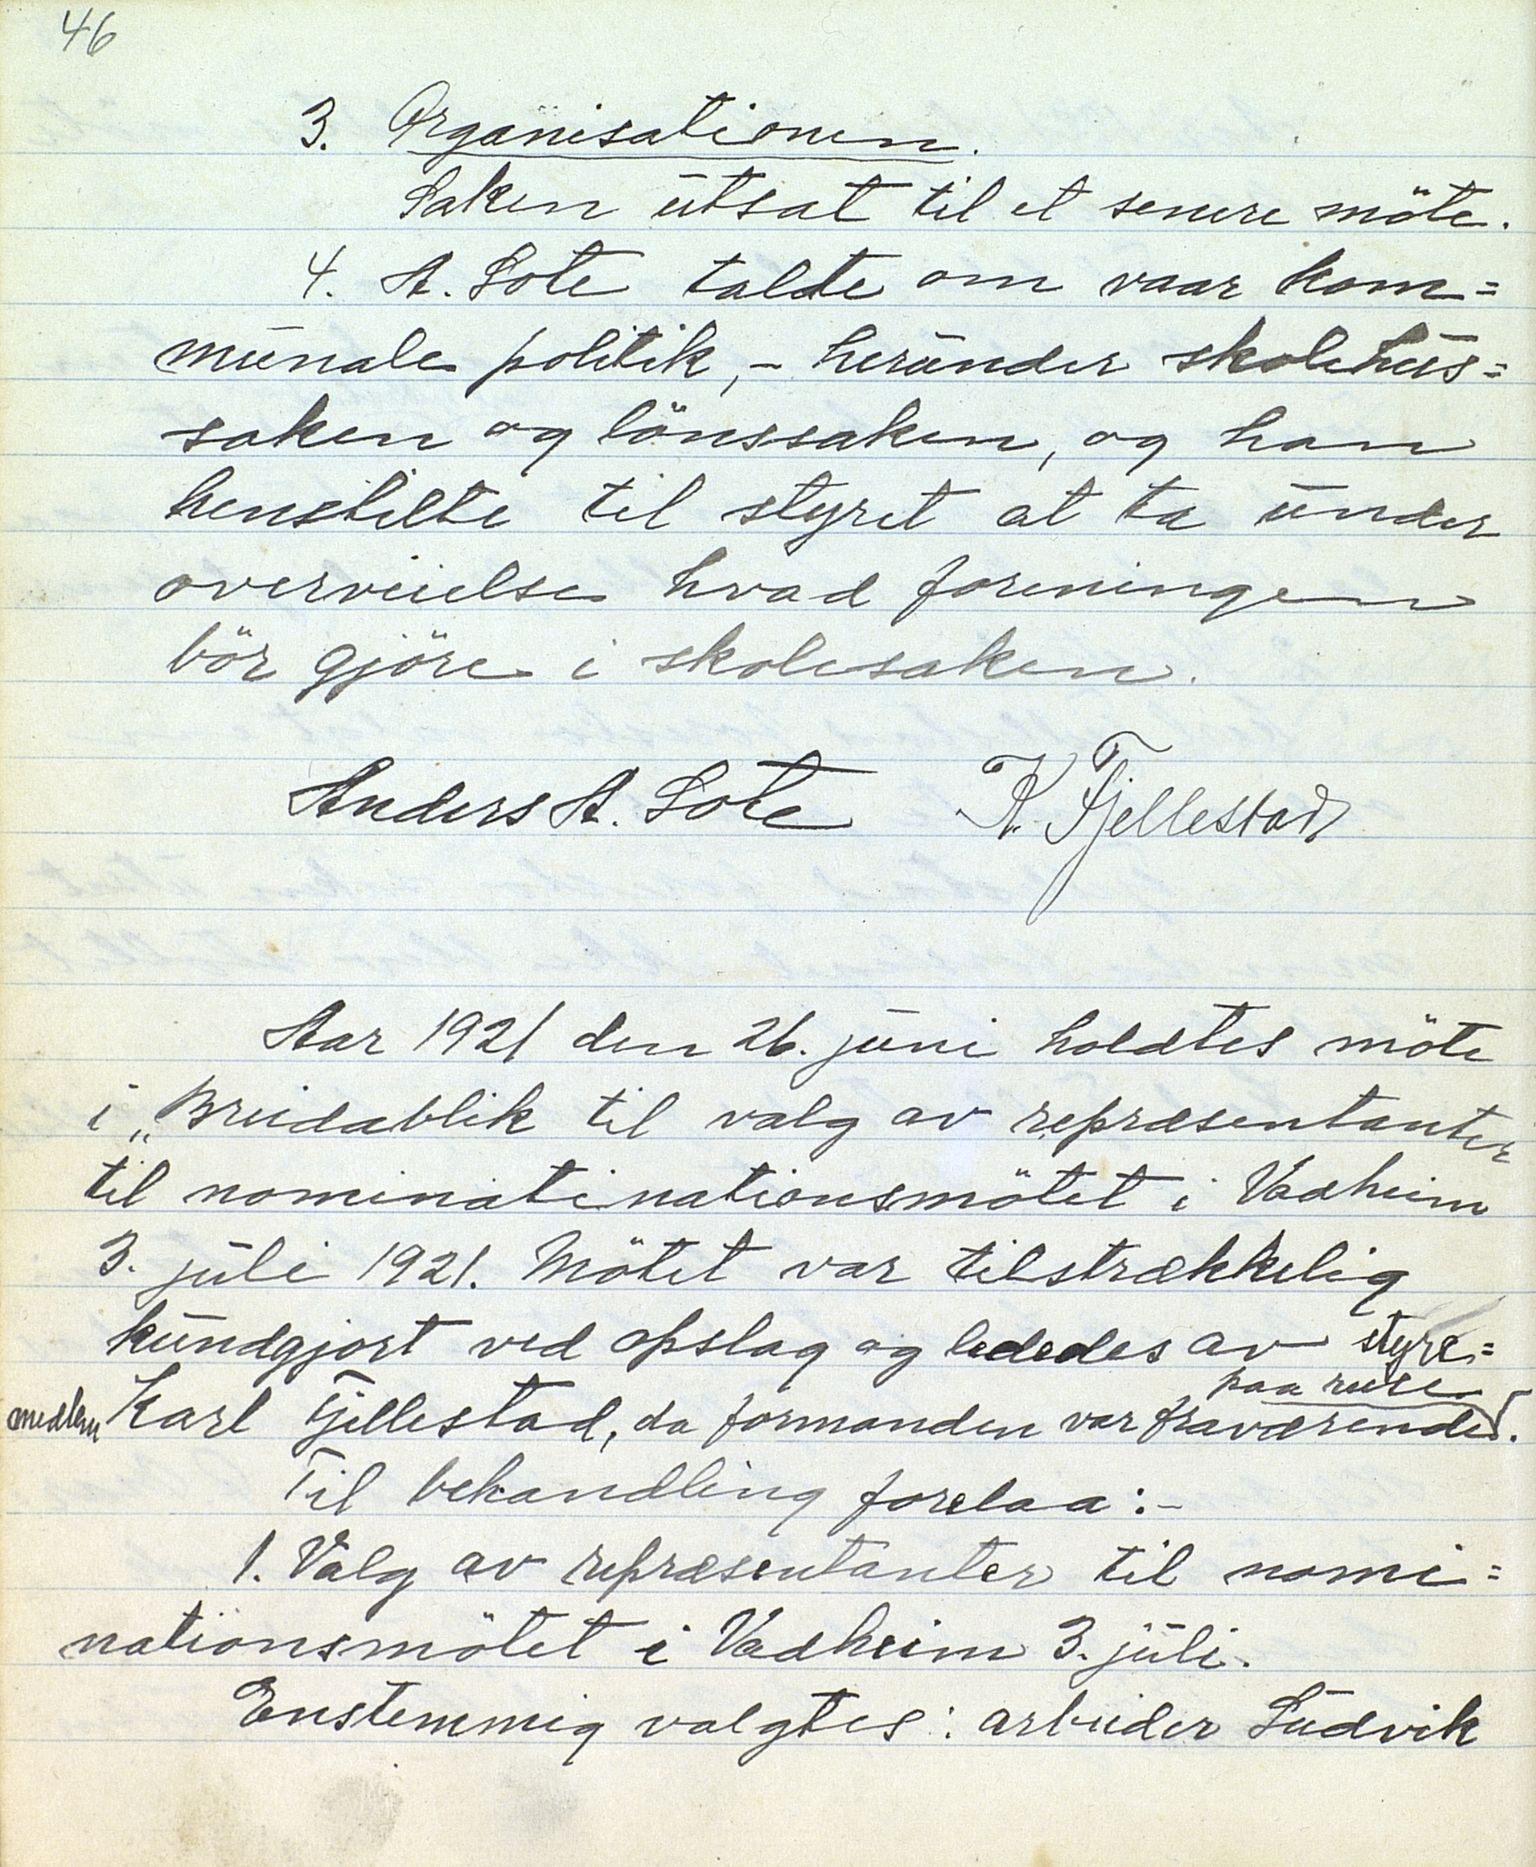 46
3. Organisationen.
Saken utsat til et senere möte.
4. A. Lote talte om vaar kom=
munale politik, - herunder skolehus=
saken og lönssaken, og han
henstilte til styret at ta under
overveielse hvad foreningen
bör gjöre i skolesaken.
Anders A. Lote K. Fjellestad
Aar 1921 den 26. juni holdtes möte
i „Breidablik til valg av repræsentanter
til nominatinationsmötet i Vadheim
3. juli 1921. Mötet var tilstrækkelig
kundgjort ved opslag og lededes av styre=
medlem Karl Fjellestad, da formanden var paa reise fraværende.
Til behandling forelaa:-
1. Valg av repræsentanter til nomi=
nationsmötet i Vadheim 3. juli.
Enstemmig valgtes: arbeider Ludvik